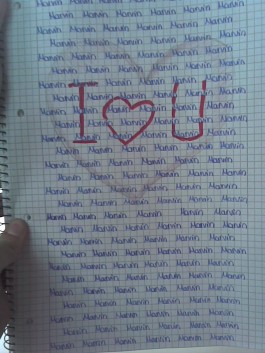 Marvin Marvin Marvin Marvin Marvin
Marvin Marvin Marvin Marvin Marvin
Marvin Marvin Marvin Marvin Marvin
Marvin Marvin Marvin Marvin Marvin
Marvin Marvin Marvin Marvin Marvin
Marvin Marvin Marvin Marvin Marvin
I ♥ U
Marvin Marvin Marvin Marvin Marvin
Marvin Marvin Marvin Marvin Marvin
Marvin Marvin Marvin Marvin Marvin
Marvin Marvin Marvin Marvin Marvin
Marvin Marvin Marvin Marvin Marvin
Marvin Marvin Marvin Marvin Marvin
Marvin Marvin Marvin Marvin Marvin
Marvin Marvin Marvin Marvin Marvin
Marvin Marvin Marvin Marvin Marvin
Marvin Marvin Marvin Marvin Marvin
Marvin Marvin Marvin Marvin Marvin
Marvin Marvin Marvin Marvin Marvin
Marvin Marvin Marvin Marvin Marvin
Marvin Marvin Marvin Marvin Marvin
Marvin Marvin Marvin Marvin Marvin
Marvin Marvin Marvin Marvin Marvin
Marvin Marvin Marvin Marvin Marvin
Marvin Marvin Marvin Marvin Marvin
Marvin Marvin Marvin Marvin Marvin
Marvin Marvin Marvin Marvin Marvin